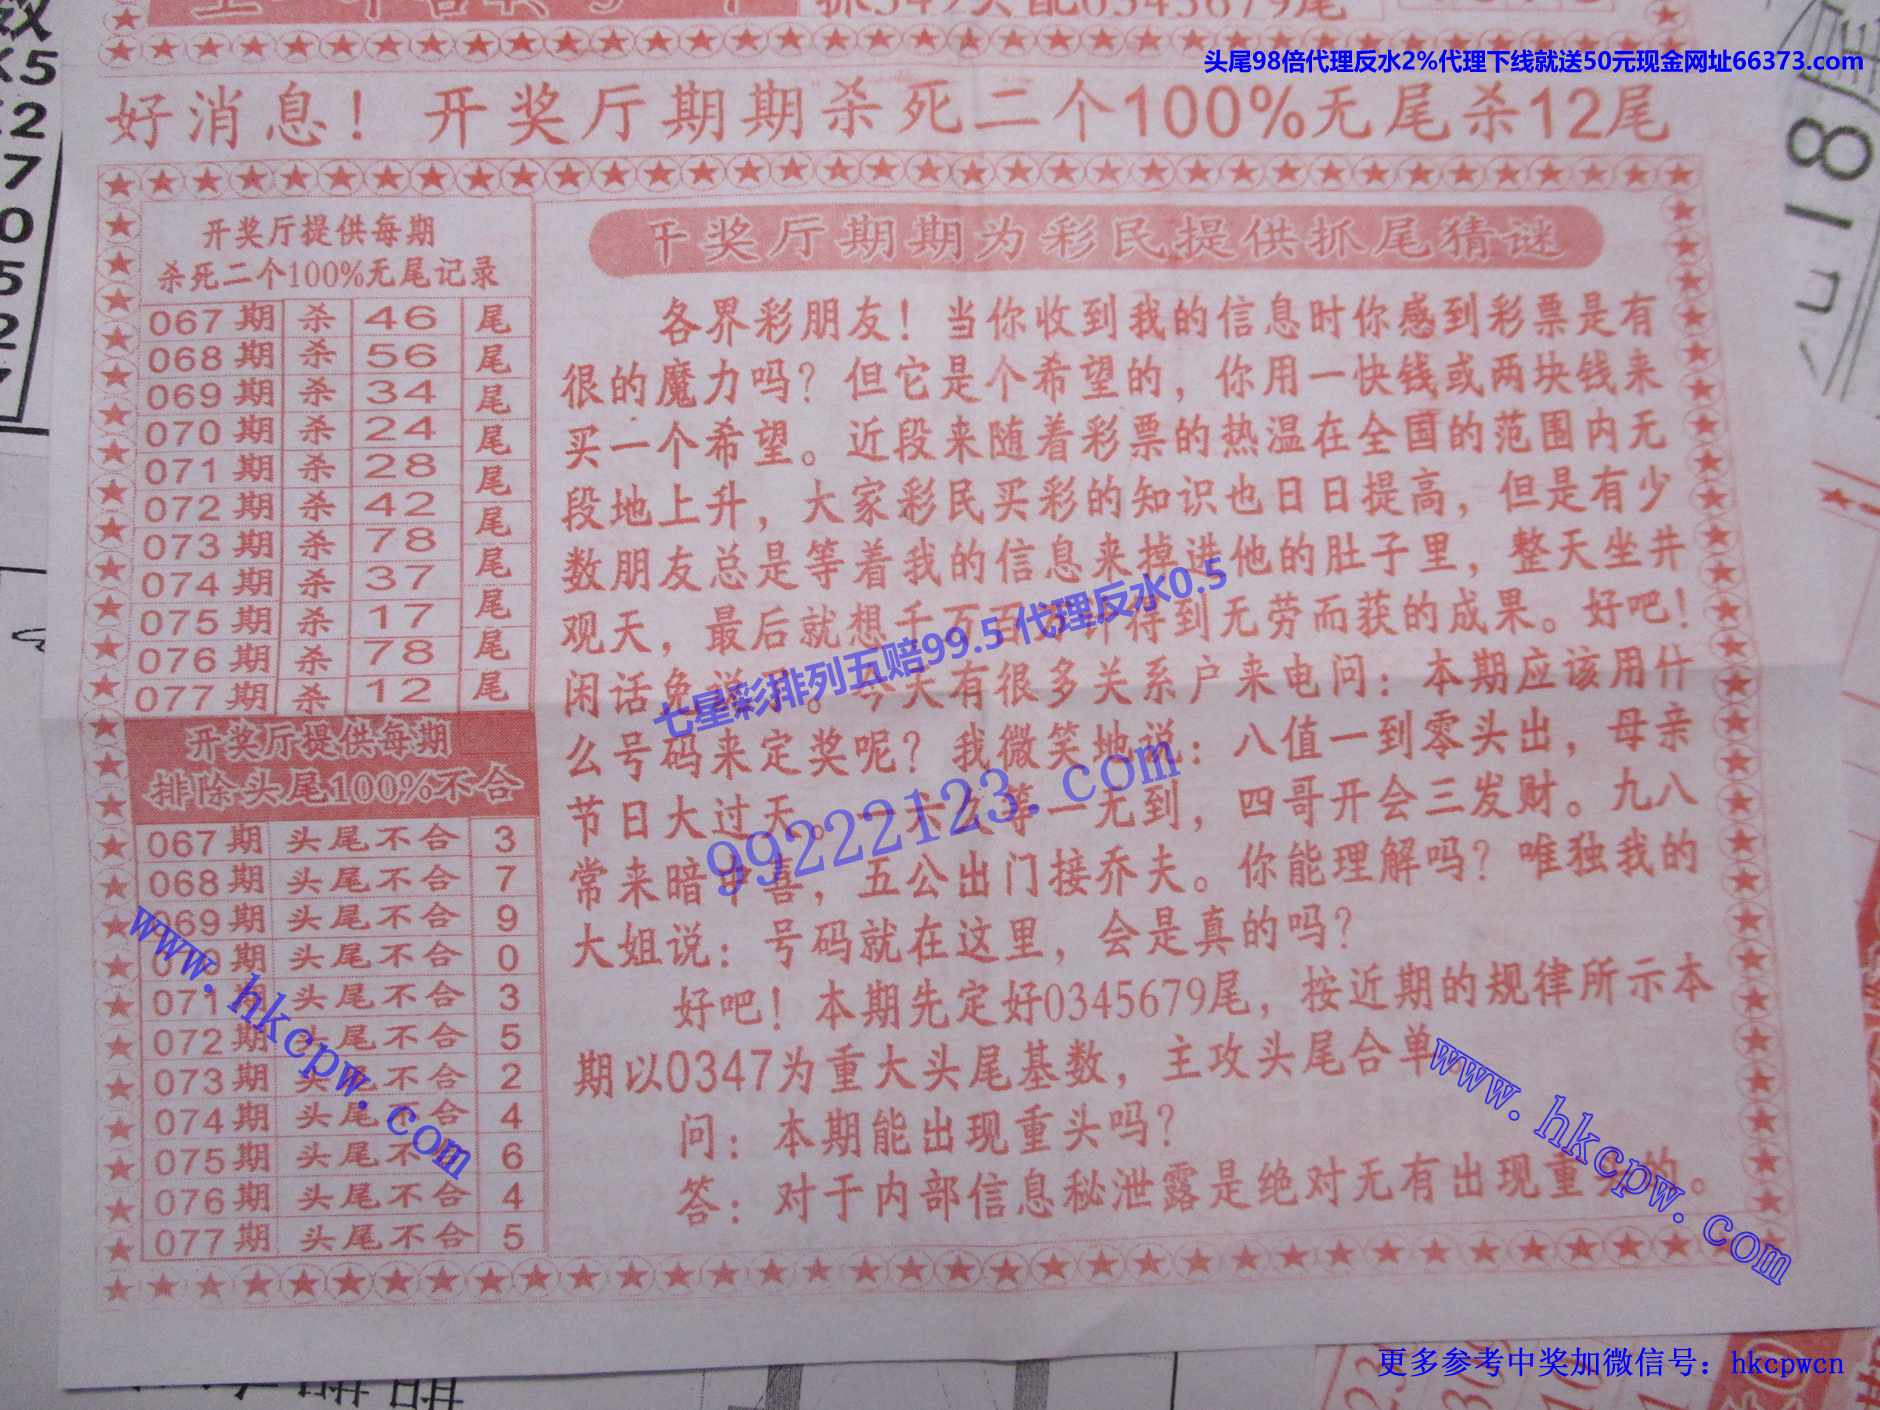 抓349头配0345679尾
头尾98倍代理反水2%代理下线就送50元现金网址66373.com
好消息！开奖厅期期杀死二个100%无尾杀12尾
开奖厅提供每期
杀死二个100%无尾记录
067期 杀 46 尾
068期 杀 56 尾
069期 杀 34 尾
070期 杀 24 尾
071期 杀 28 尾
072期 杀 42 尾
073期 杀 78 尾
074期 杀 37 尾
075期 杀 17 尾
076期 杀 78 尾
077期 杀 12 尾
开奖厅提供每期
排除头尾100%不合
067期 头尾不合 3
068期 头尾不合 7
069期 头尾不合 9
期 头尾不合 0
071期 头尾不合 3
072期 头尾不合 5
073期 头尾不合 2
074期 头尾不合 4
075期 头尾不 6
076期 头尾不合 4
077期 头尾不合 5
开奖厅期期为彩民提供抓尾猜谜
各界彩朋友！当你收到我的信息时你感到彩票是有
很的魔力吗？但它是个希望的，你用一快钱或两块钱来
买一个希望。近段来随着彩票的热温在全国的范围内无
段地上升，大家彩民买彩的知识也日日提高，但是有少
数朋友总是等着我的信息来掉进他的肚子里，整天坐井
观天，最后就想千百得到无劳而获的成果。好吧！
闲话免。今天有很多关系户来电问：本期应该用什
么号码来定奖呢？我微笑地说：八值一到零头出，母亲
节日大过天。一六么等一无到，四哥开会三发财。九八
常来暗中喜，五公出门接乔夫。你能理解吗？唯独我的
大姐说：号码就在这里，会是真的吗？
好吧！本期先定好0345679尾，按近期的规律所示本
期以0347为重大头尾基数，主攻头尾合单
问：本期能出现重头吗？
答：对于内部信息秘泄露是绝对无有出现重的。
七星彩排列五赔99.5 代理反水0.5
99222123.com
www.hkcpw.com
www.hkcpw.com
更多参考中奖加微信号：hkcpwcn